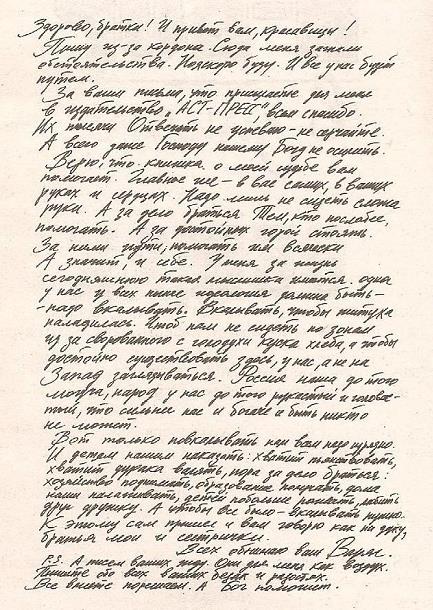 Здорово, братки! И привет вам, красавицы!
Пишу из-за кордона. Сюда меня загнали
обстоятельства. Но скоро буду. И все у нас будет
путем.
За ваши письма, что пришлете для меня
в издательство „АСТ-ПРЕСС", всем спасибо.
Их тысячи. Ответить не успеваю - не серчайте.
А всего даже Господу нашему Богу не осилить.
Верю, что книжка о моей судьбе вам
помогает. Главное же - в вас самих, в ваших
руках и сердцах. Надо лишь не сидеть сложа
руки. А за дело браться. Тем, кто послабее,
помогать. А за достойных горой стоять.
За ними идти, помогать им всячески
А значит, и себе. У меня за жизнь
сегодняшнюю такая мыслишка имеется. одна
у нас у всех ныне идеология должна быть-
-надо вкалывать. Вкалывать, чтобы житуха
наладилась. Чтоб нам не сидеть по зонам
из-за сворованного с голодухи куска хлеба, а чтобы
достойно существовать здесь, у нас, а не на
Запад заглядываться. Россия наша до того
могуча, народ у нас до того рукастый и голова-
тый, что сильнее нас и богаче быть никто
не может.
Вот только повкалывать нам всем надо изрядно.
И детям нашим наказать: хватит пьянствовать,
хватит дурака валять, пора за дело браться:
хозяйство поднимать, образование получать, дома
наши налаживать, детей побольше рожать, любить
друг дружку. А чтобы все было - вкалывать нужно.
К этому сам пришел и вам говорю как на духу,
братья мои и сестрички.
Всех обнимаю ваш
P.S. А писем ваших жду. Они для меня как воздух.
Пишите обо всех ваших бедах и радостях.
Все вместе порешаем. А Бог поможет.